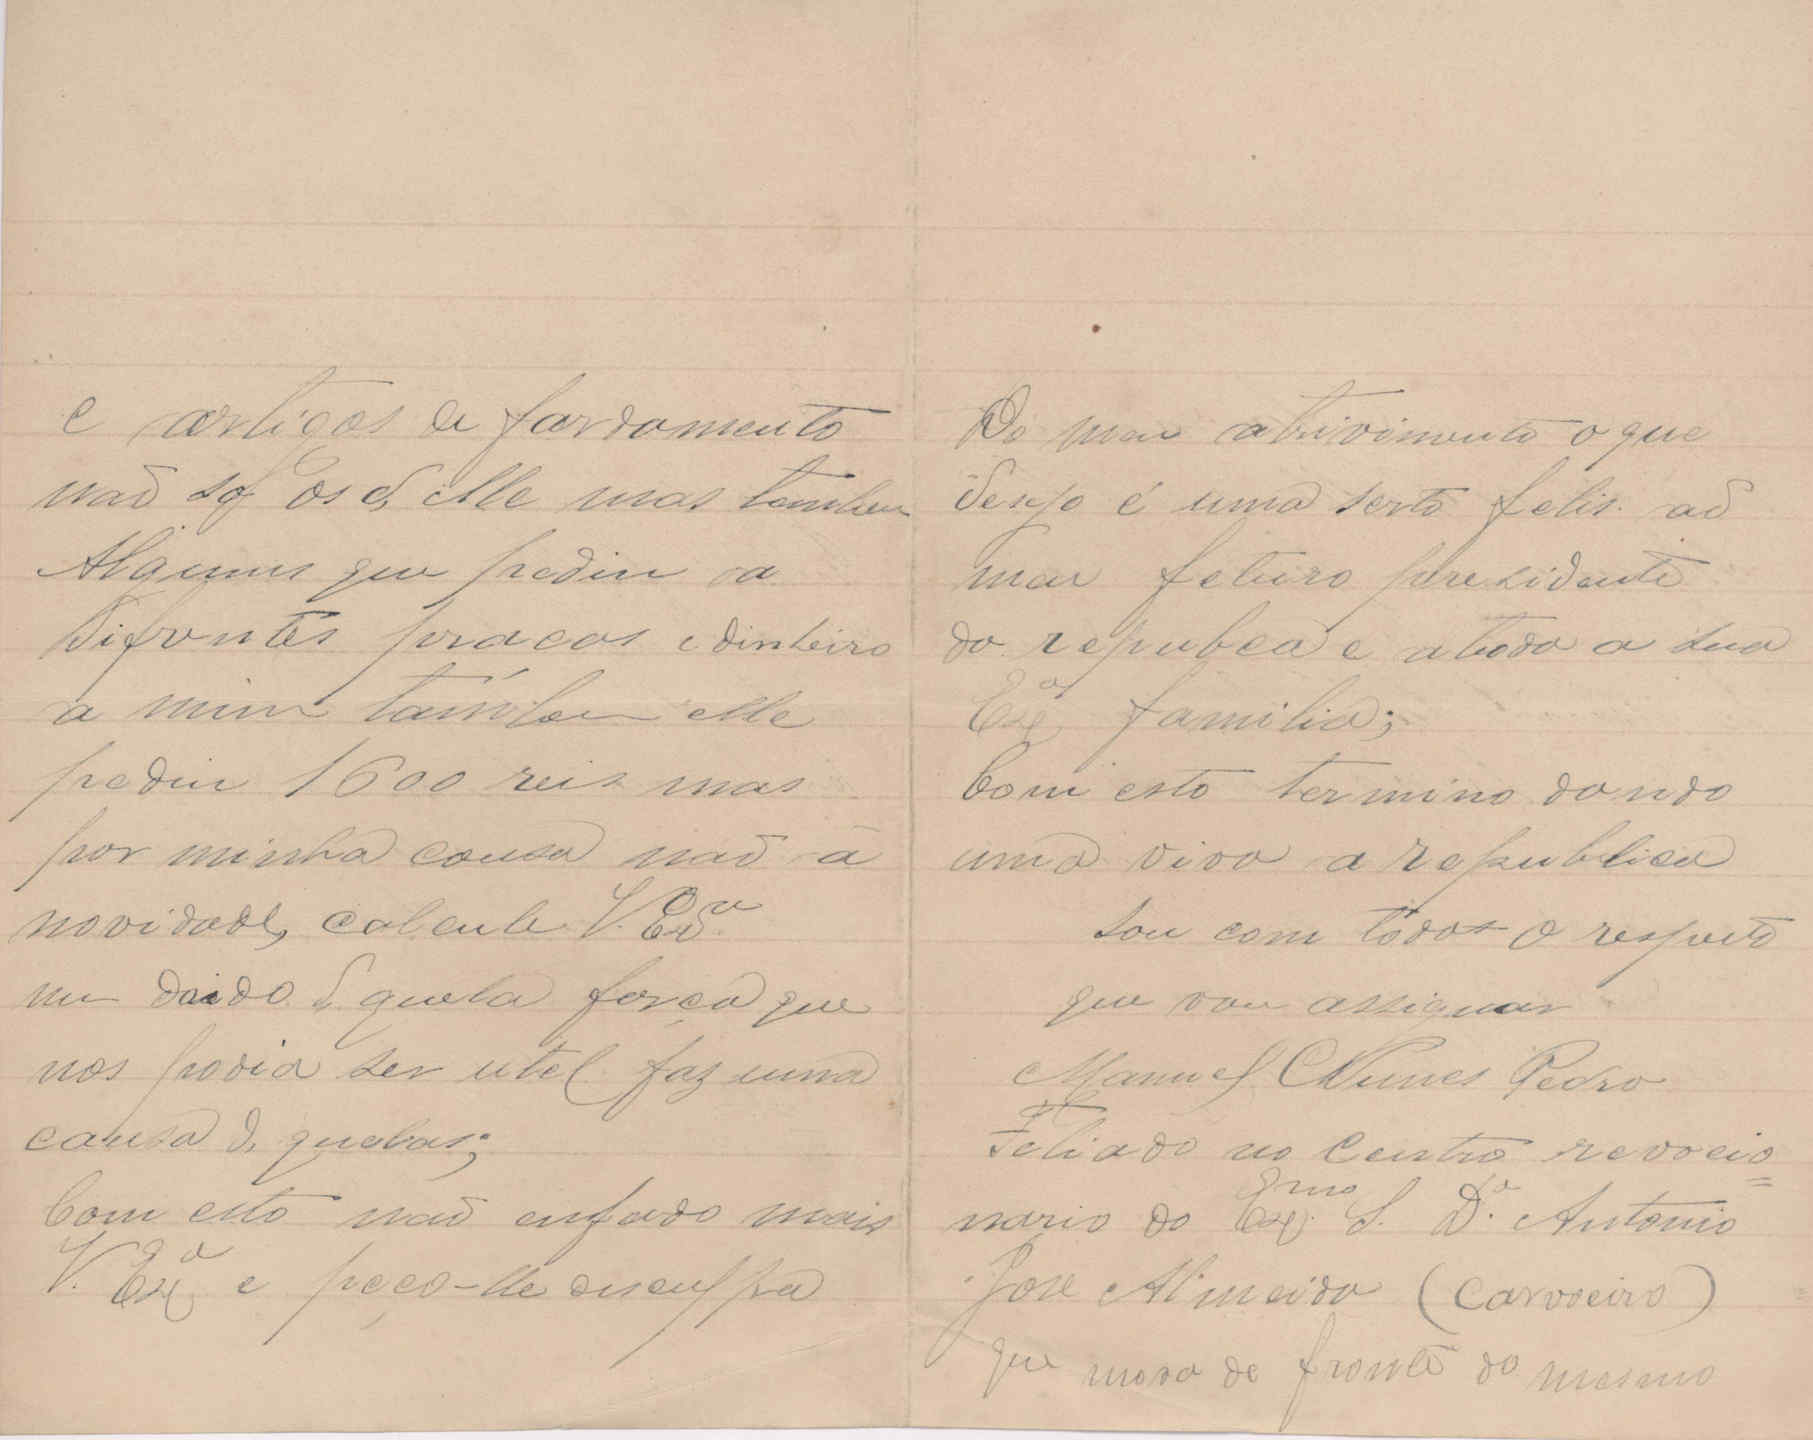 e artigos de fardamento
naõ só os d, elle mas tambem
Algumus que pediu a
difrontes pracas e dinheiro
a mim tamilem elle
pediu 1600 reis mas
por minha causa naõ á
novidade, calcule V. Exª
um daido d, quela força que
nos podia ser utel faz uma
causa d, quelas;
Com esto naõ enfado mais
V. Exª e peço-lle disculpa
Do meu atrivimento o que
desejo é uma serto felis. aõ
meu feturo prezidente
da repubca e a toda a sua
Exª familia;
Com esto termino dando
uma viva a republica
Sou com todos o respeito
que vou assignar
Manuel Nunes Pedro
Feliado no Centro revocio=
nario do Exmo S. D.r Antonio
Jose Almeida (Carvoeiro)
que mora de fronte do mesmo